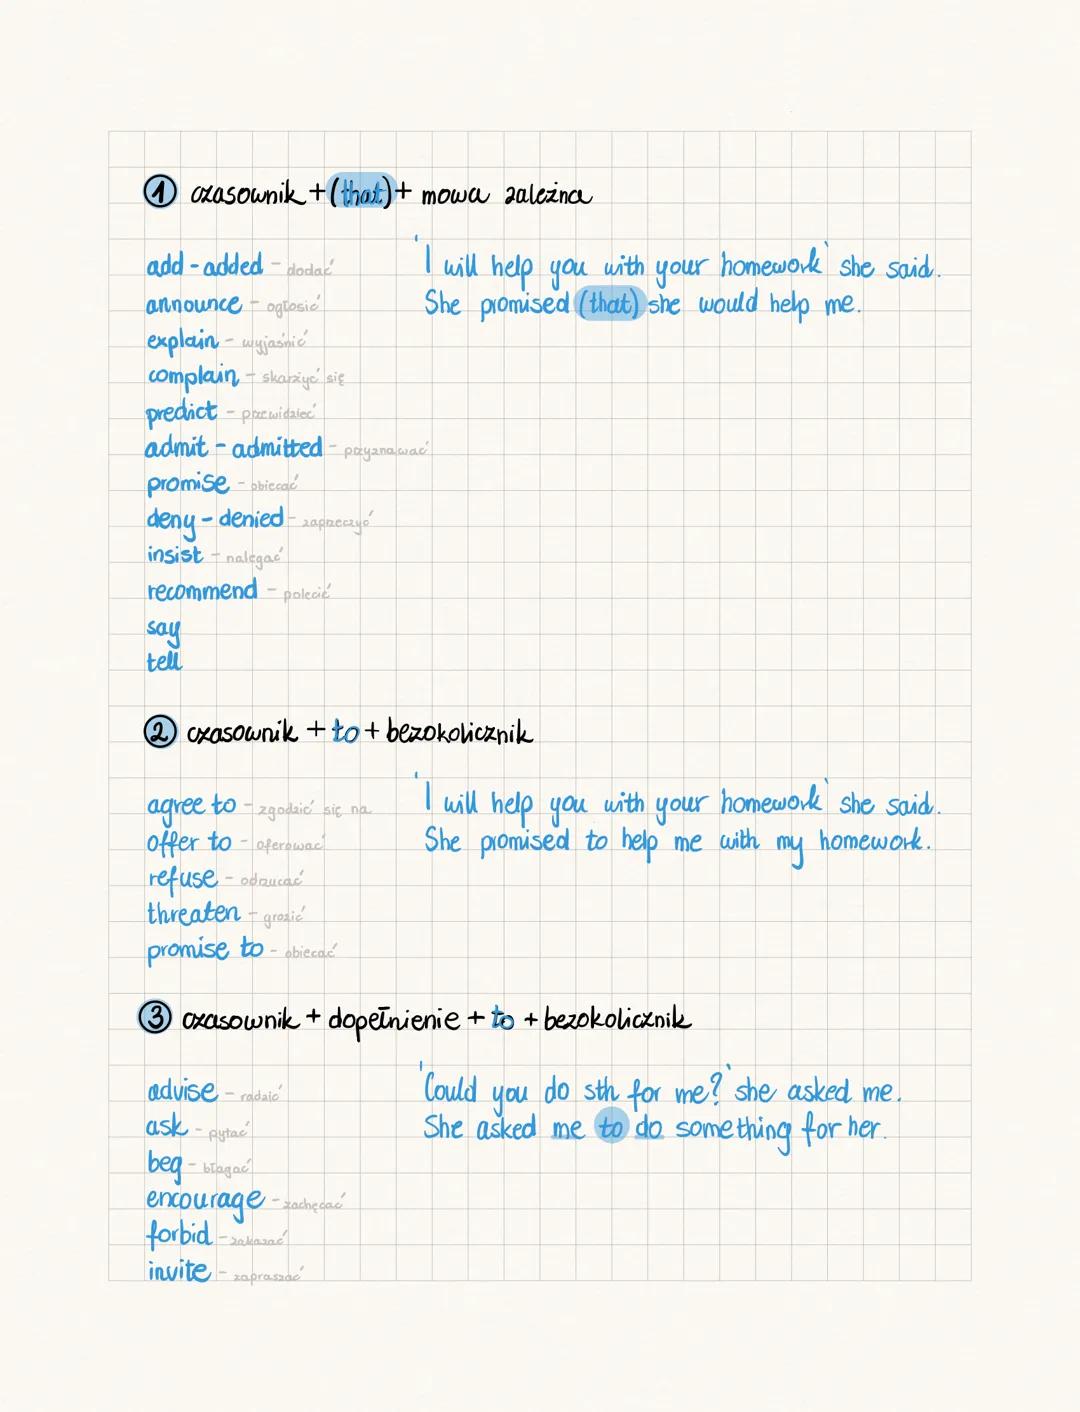 1 czasownik + (that) + mowa zależna
add - added - dodać
announce - ogłosić
explain - wyjaśnić
complain - skarżyć się
predict - przewidzieć
admit - admitted - przyznawać
promise - obiecać
deny - denied - zaprzeczyć
insist - nalegać
recommend - polecić
say
tell
'I will help you with your homework' she said.
She promised (that) she would help me.
2 czasownik + to + bezokolicznik
agree to - zgodzić się na
offer to - oferować
refuse - odrzucać
threaten - grozić
promise to - obiecać
'I will help you with your homework' she said.
She promised to help me with my homework.
3 czasownik + dopełnienie + to + bezokolicznik
advise - radzić
ask - pytać
beg - błagać
encourage - zachęcać
forbid - zakazać
invite - zapraszać
'Could you do sth for me?' she asked me.
She asked me to do something for her.